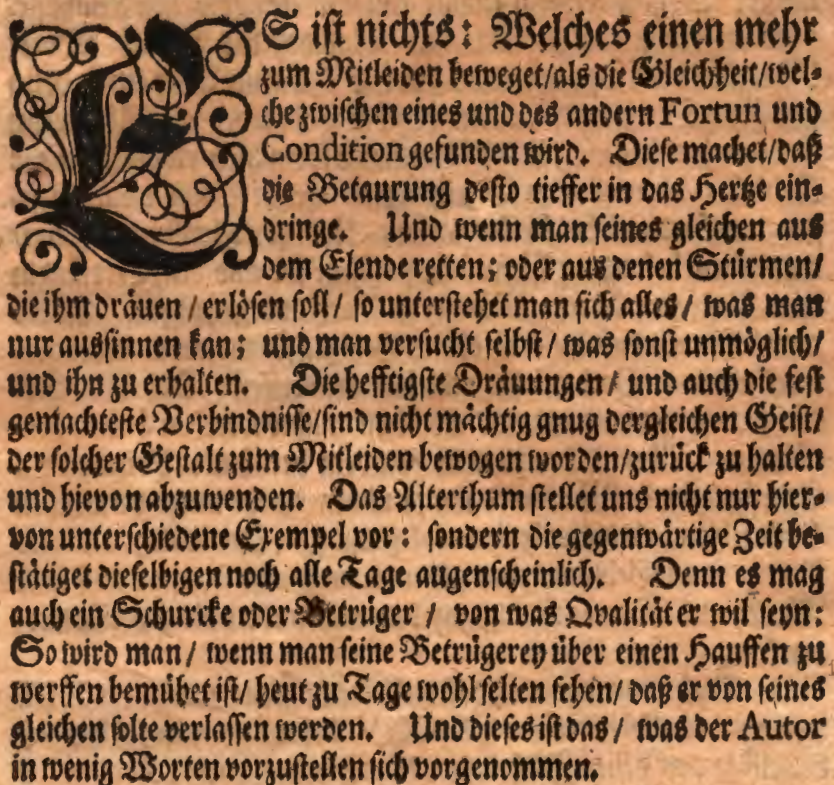 ES ist nichts: Welches einen mehr
zum Mitleiden beweget/als die Gleichheit/wel-
che zwischen eines und des andern Fortun und
Condition gefunden wird. Diese machet/daß
die Betaurung desto tieffer in das Hertze ein-
dringe. Und wenn man seines gleichen aus
dem Elende retten; oder aus denen Stürmen/
die ihm dräuen / erlösen soll / so unterstehet man sich alles / was man
nur aussinnen kan; und man versucht selbst / was sonst unmöglich/
und ihn zu erhalten. Die hefftigste Dräuungen / und auch die fest
gemachteste Verbindnisse/sind nicht mächtig gnug dergleichen Geist/
der solcher Gestalt zum Mitleiden bewogen worden/zurück zu halten
und hievon abzuwenden. Das Alterthum stellet uns nicht nur hier-
von unterschiedene Exempel vor: sondern die gegenwärtige Zeit be-
stätiget dieselbigen noch alle Tage augenscheinlich. Denn es mag
auch ein Schurcke oder Betrüger / von was Qvalität er wil seyn:
So wird man / wenn man seine Betrügerey über einen Hauffen zu
werffen bemühet ist/ heut zu Tage wohl selten sehen/ daß er von seines
gleichen solte verlassen werden. Und dieses ist das / was der Autor
in wenig Worten vorzustellen sich vorgenommen.